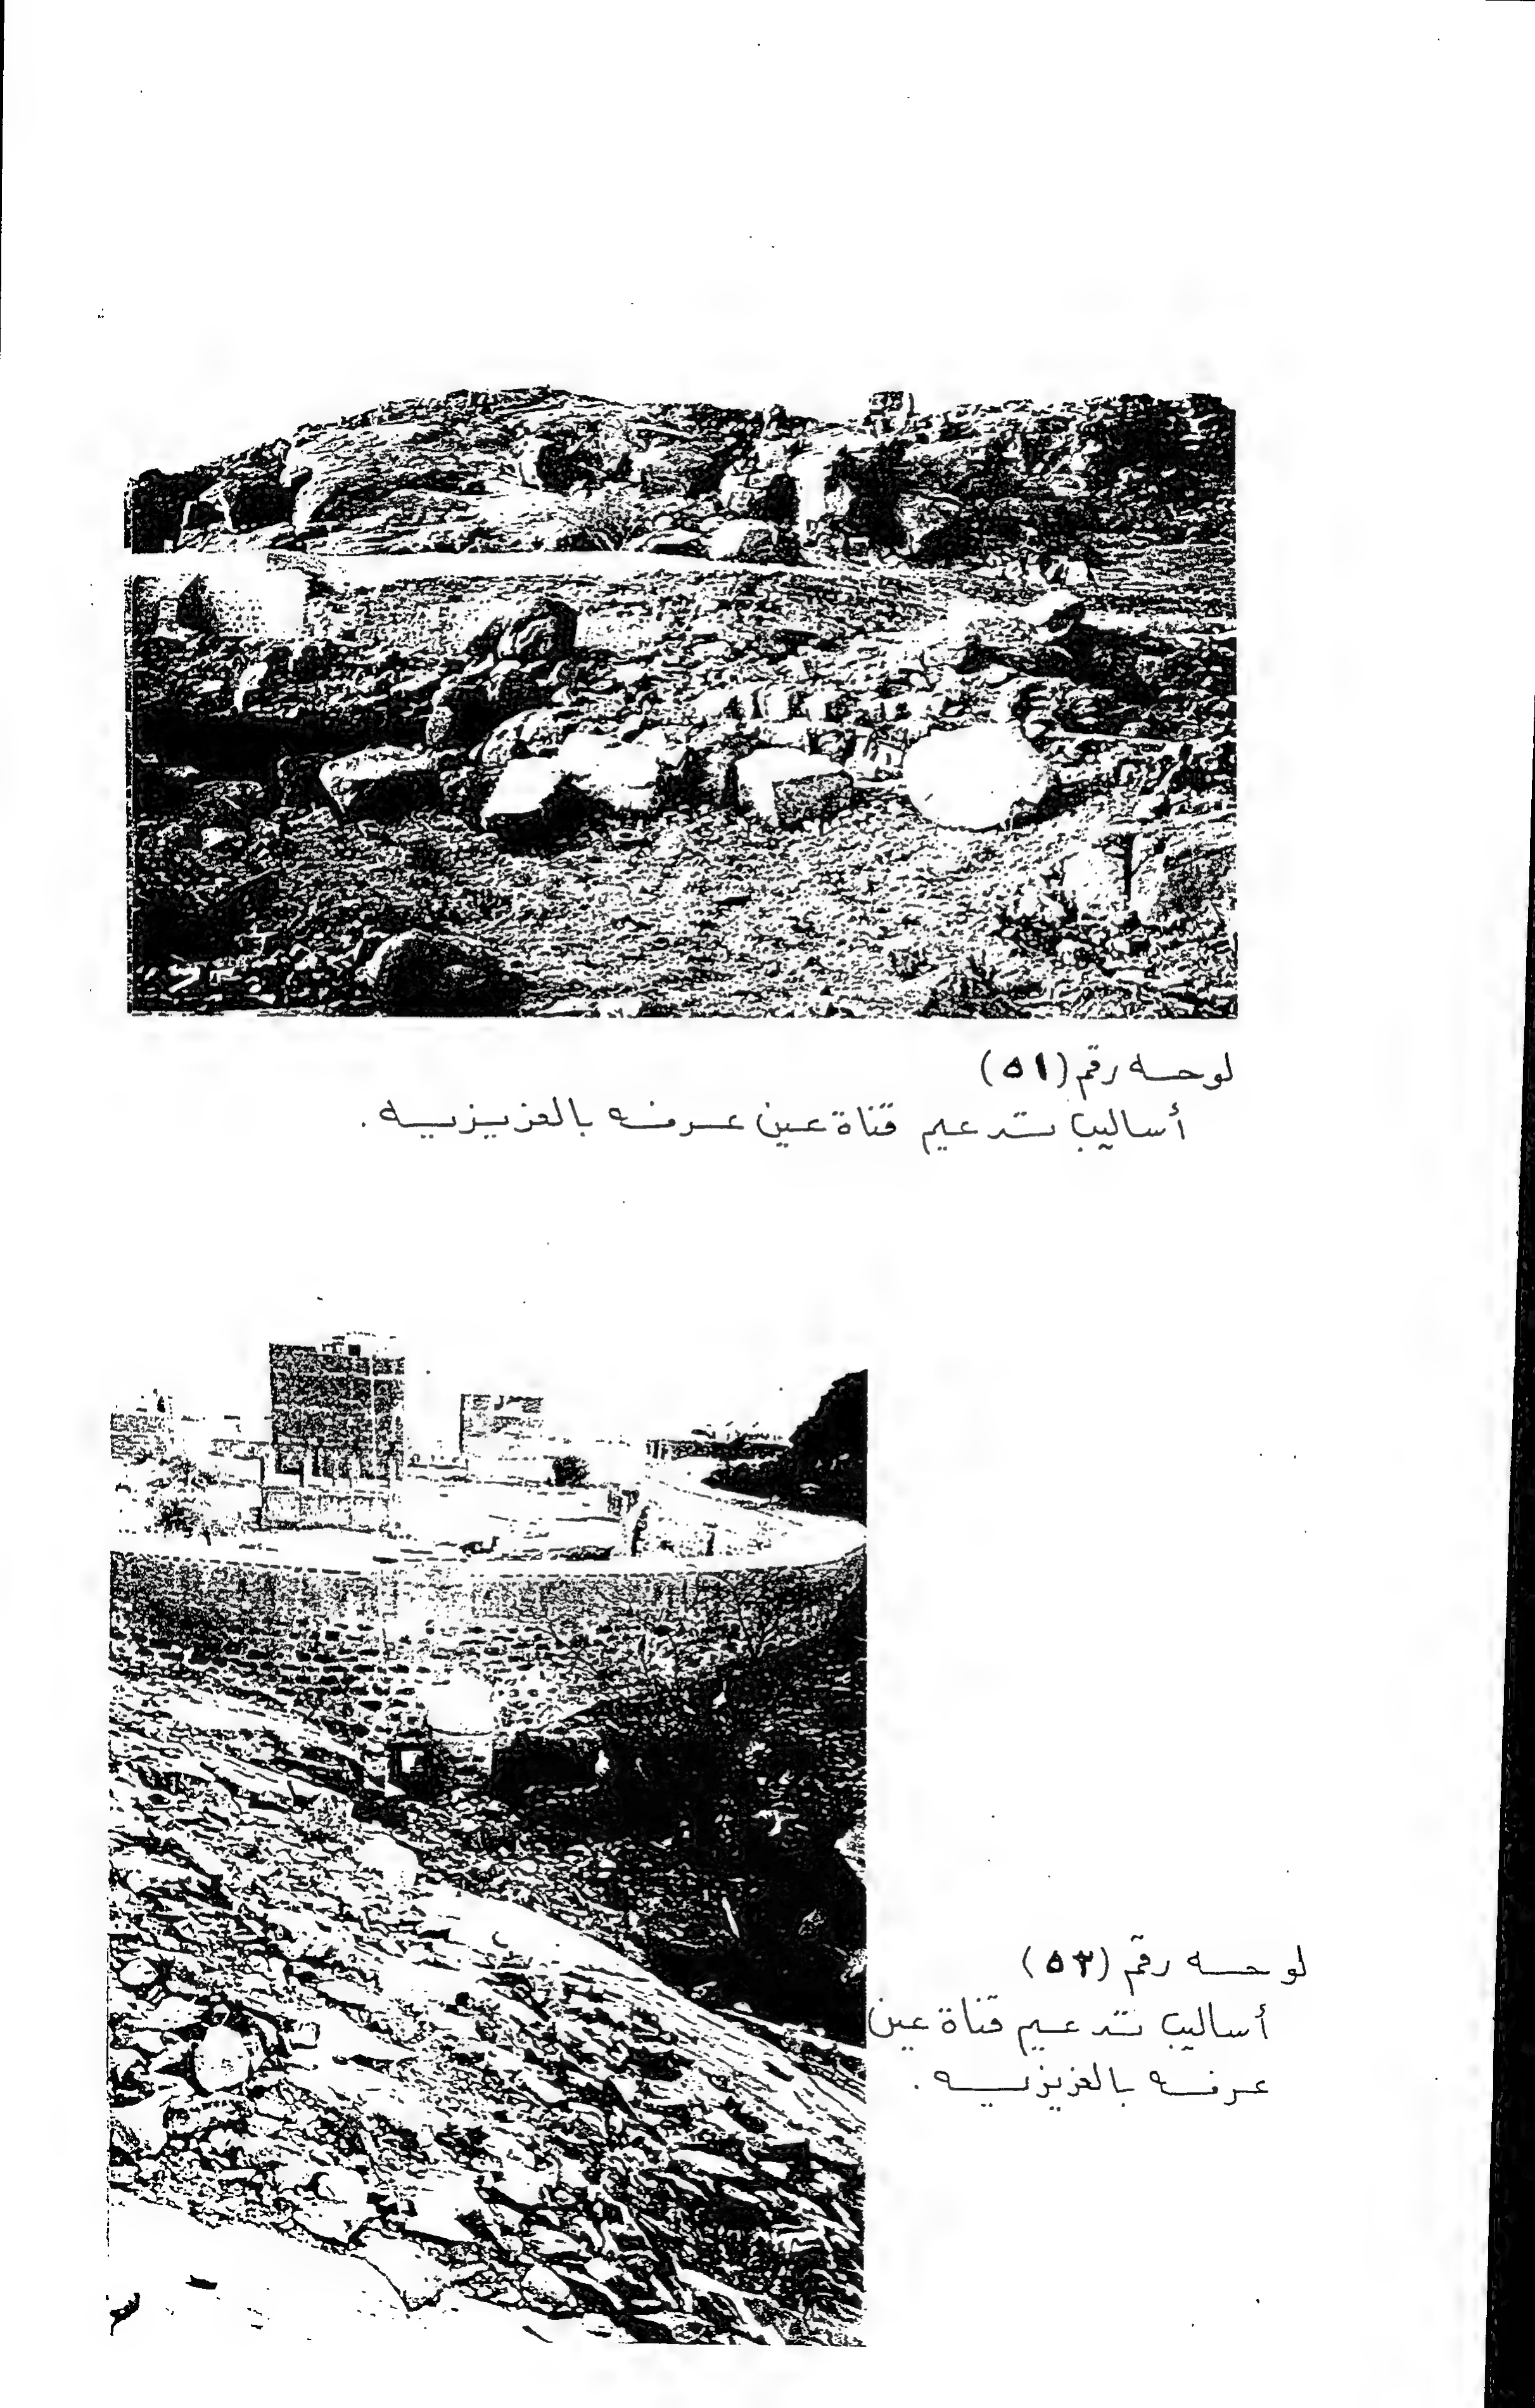 لوحه رقم (٥١)
أساليب تدعيم قناة عين عرفه بالعزيزيه .
لوحه رقم (٥٢)
أساليب تدعيم قناة عين
عرفه بالعزيزيه .